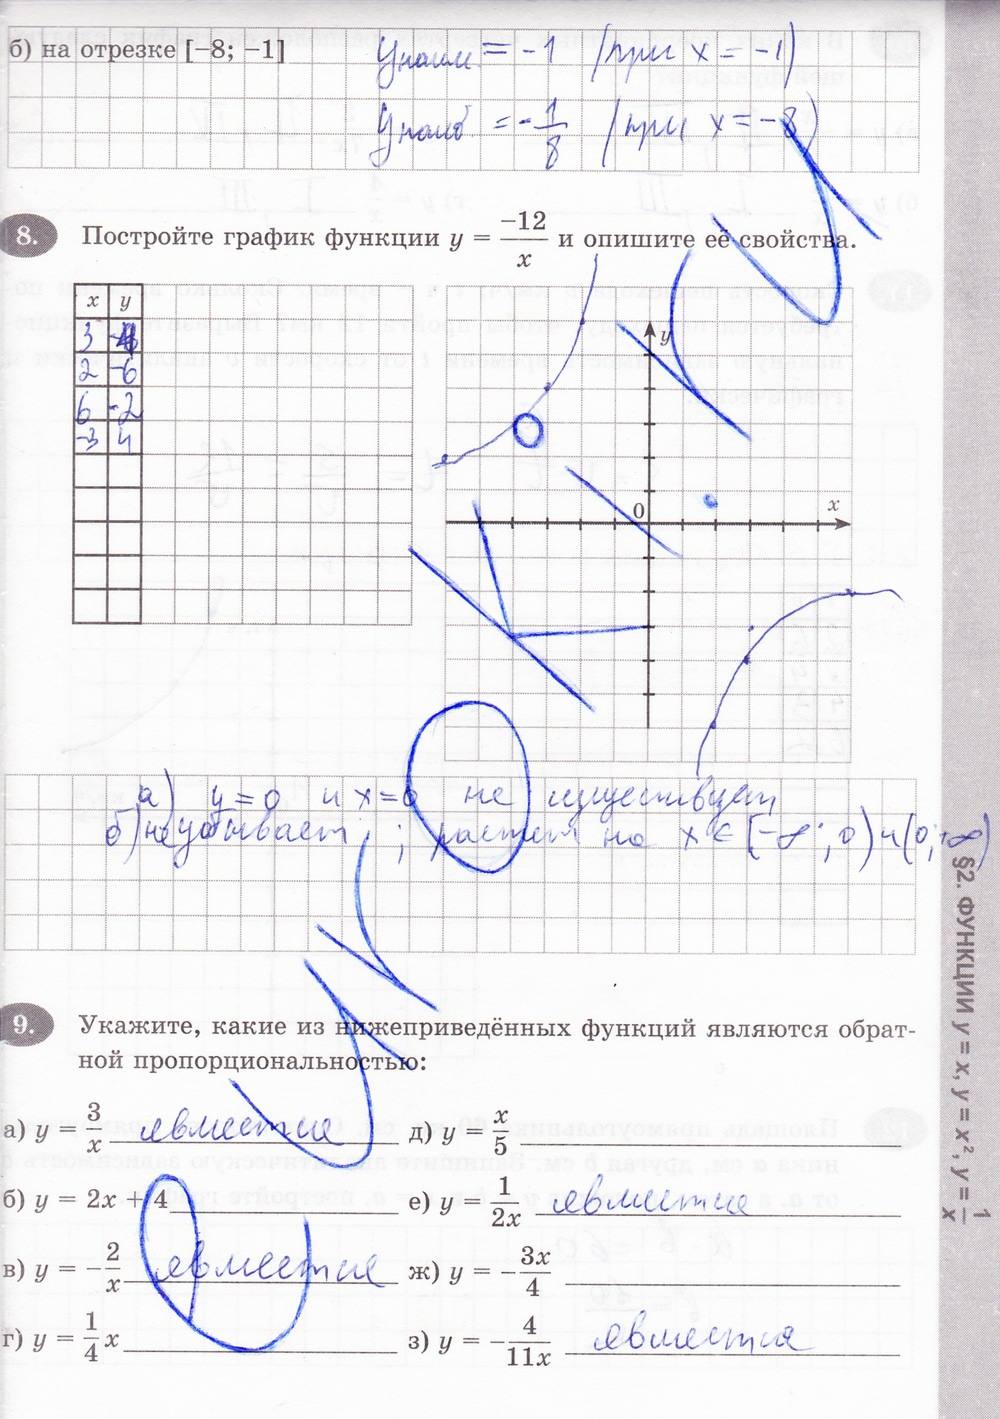 б) на отрезке [−8; −1] Yнаим = −1 (при x = −1)
Yнаиб = −1/8 (при x = −8)
8. Постройте график функции y = −12/x и опишите её свойства.
x y
3 −4
2 −6
6 −2
−3 4
y
x
0
а) y=0 и x=0 не существует
б) не убывает ; растет на x ∈ [−∞; 0) и (0; +∞)
9. Укажите, какие из нижеприведённых функций являются обрат-
ной пропорциональностью:
а) y = 3/x является д) y = x/5
б) y = 2x + 4 е) y = 1/2x является
в) y = −2/x является ж) y = −3x/4
г) y = 1/4 x з) y = −4/11x является
§2. ФУНКЦИИ y = x, y = x², y = 1/x